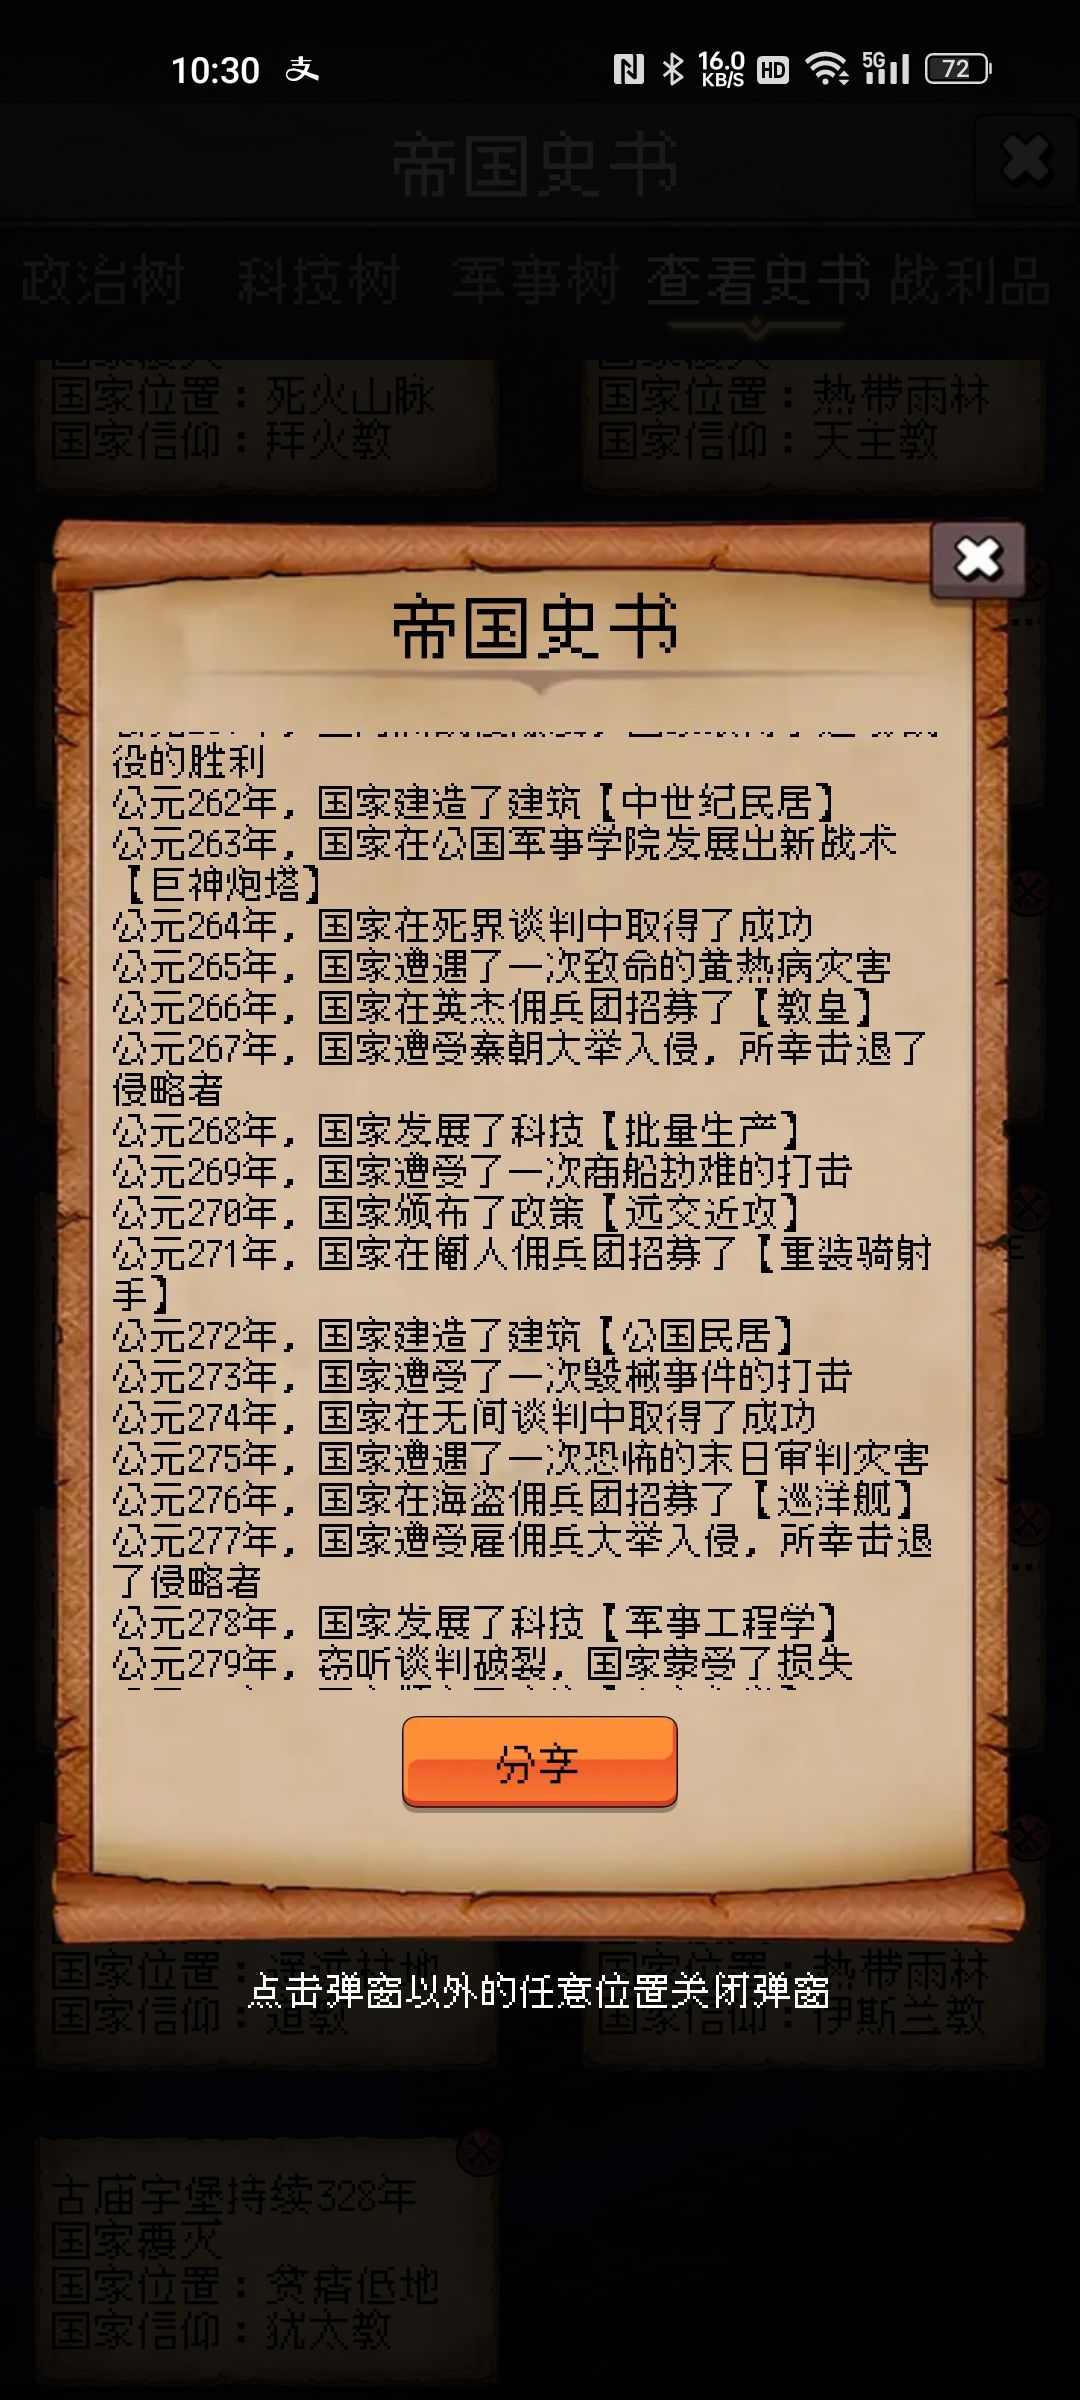 10:30 支 16.0 KB/S HD 5G 72
帝国史书
政治树 科技树 军事树 查看史书 战利品
国家位置：死火山脉 国家位置：热带雨林
国家信仰：拜火教 国家信仰：天主教
帝国史书
役的胜利
公元262年，国家建造了建筑【中世纪民居】
公元263年，国家在公国军事学院发展出新战术
【巨神炮塔】
公元264年，国家在死界谈判中取得了成功
公元265年，国家遭遇了一次致命的黄热病灾害
公元266年，国家在英杰佣兵团招募了【教皇】
公元267年，国家遭受秦朝大举入侵，所幸击退了
侵略者
公元268年，国家发展了科技【批量生产】
公元269年，国家遭受了一次商船劫难的打击
公元270年，国家颁布了政策【远交近攻】
公元271年，国家在阉人佣兵团招募了【重装骑射
手】
公元272年，国家建造了建筑【公国民居】
公元273年，国家遭受了一次毁械事件的打击
公元274年，国家在无间谈判中取得了成功
公元275年，国家遭遇了一次恐怖的末日审判灾害
公元276年，国家在海盗佣兵团招募了【巡洋舰】
公元277年，国家遭受雇佣兵大举入侵，所幸击退
了侵略者
公元278年，国家发展了科技【军事工程学】
公元279年，窃听谈判破裂，国家蒙受了损失
分享
国家位置： 国家位置：热带雨林
点击弹窗以外的任意位置关闭弹窗
国家信仰：道教 国家信仰：伊斯兰教
古庙宇堡持续328年
国家覆灭
国家位置：贫瘠低地
国家信仰：犹太教